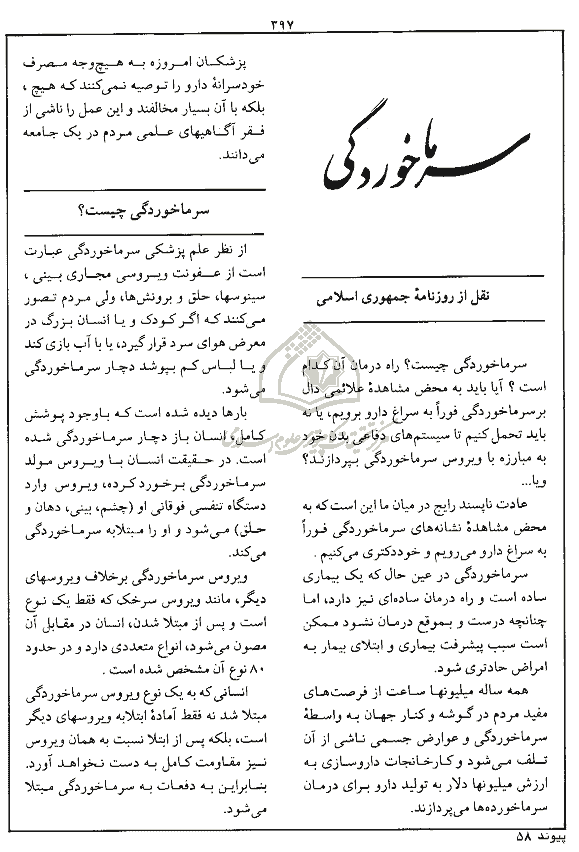 ۳۹۷
سرماخوردگی
نقل از روزنامهٔ جمهوری اسلامی
سرماخوردگی چیست؟ راه درمان آن کدام
است ؟ آیا باید به محض مشاهدهٔ علائمی دال
برسرماخوردگی فوراً به سراغ دارو برویم، یا نه
باید تحمل کنیم تا سیستم‌های دفاعی بدن خود
به مبارزه با ویروس سرماخوردگی بپردازند؟
ویا...
عادت ناپسند رایج در میان ما این است که به
محض مشاهدهٔ نشانه‌های سرماخوردگی فوراً
به سراغ دارو می‌رویم و خوددکتری می‌کنیم .
سرماخوردگی در عین حال که یک بیماری
ساده است و راه درمان ساده‌ای نیز دارد، اما
چنانچه درست و بموقع درمان نشود ممکن
است سبب پیشرفت بیماری و ابتلای بیمار به
امراض حادتری شود.
همه ساله میلیونها ساعت از فرصت‌های
مفید مردم در گوشه و کنار جهان به واسطهٔ
سرماخوردگی و عوارض جسمی ناشی از آن
تلف می‌شود و کارخانجات داروسازی به
ارزش میلیونها دلار به تولید دارو برای درمان
سرماخورده‌ها می‌پردازند.
پزشکان امروزه به هیچ‌وجه مصرف
خودسرانهٔ دارو را توصیه نمی‌کنند که هیچ ،
بلکه با آن بسیار مخالفند و این عمل را ناشی از
فقر آگاهیهای علمی مردم در یک جامعه
می‌دانند.
سرماخوردگی چیست؟
از نظر علم پزشکی سرماخوردگی عبارت
است از عفونت ویروسی مجاری بینی ،
سینوسها، حلق و برونش‌ها، ولی مردم تصور
می‌کنند که اگر کودک و یا انسان بزرگ در
معرض هوای سرد قرار گیرد، یا با آب بازی کند
و یا لباس کم بپوشد دچار سرماخوردگی
می‌شود.
بارها دیده شده است که باوجود پوشش
کامل، انسان باز دچار سرماخوردگی شده
است. در حقیقت انسان با ویروس مولد
سرماخوردگی برخورد کرده، ویروس وارد
دستگاه تنفسی فوقانی او (چشم، بینی، دهان و
حلق) می‌شود و او را مبتلا به سرماخوردگی
می‌کند.
ویروس سرماخوردگی برخلاف ویروسهای
دیگر، مانند ویروس سرخک که فقط یک نوع
است و پس از مبتلا شدن، انسان در مقابل آن
مصون می‌شود، انواع متعددی دارد و در حدود
۸۰ نوع آن مشخص شده است .
انسانی که به یک نوع ویروس سرماخوردگی
مبتلا شد نه فقط آمادهٔ ابتلا به ویروسهای دیگر
است، بلکه پس از ابتلا نسبت به همان ویروس
نیز مقاومت کامل به دست نخواهد آورد.
بنابراین به دفعات به سرماخوردگی مبتلا
می‌شود.
پیوند ۵۸